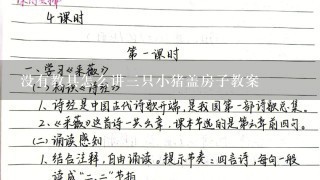 4课时
第一课时
一、学习《采薇》
没有教具怎么讲三只小猪盖房子教案
1、诗经是中国古代诗歌开端，是我国第一部诗歌总集。
2、《采薇》这首诗一共六章，课本节选的是第六章前四句。
(二)诵读感知
1、结合注释，自由诵读。提示节奏：四言诗，每句一般
读成“二、二”节拍